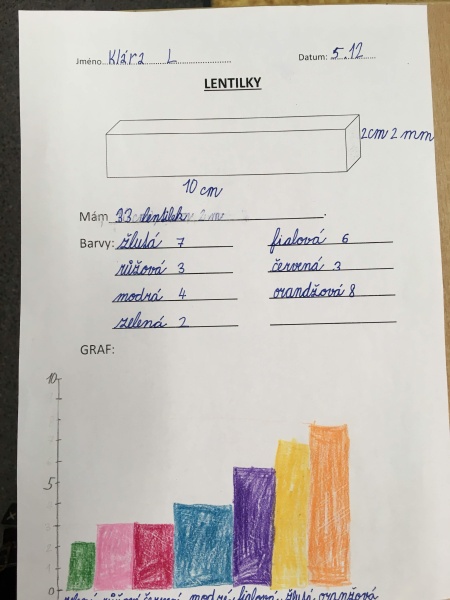 Jméno Klára L Datum: 5.12
LENTILKY
2cm 2mm
10 cm
Mám 33 lentilek
Barvy: žlutá 7 fialová 6
růžová 3 červená 3
modrá 4 orandžová 8
zelená 2
GRAF:
10
5
0
zelená růžová červená modrá fialová žlutá oranžová